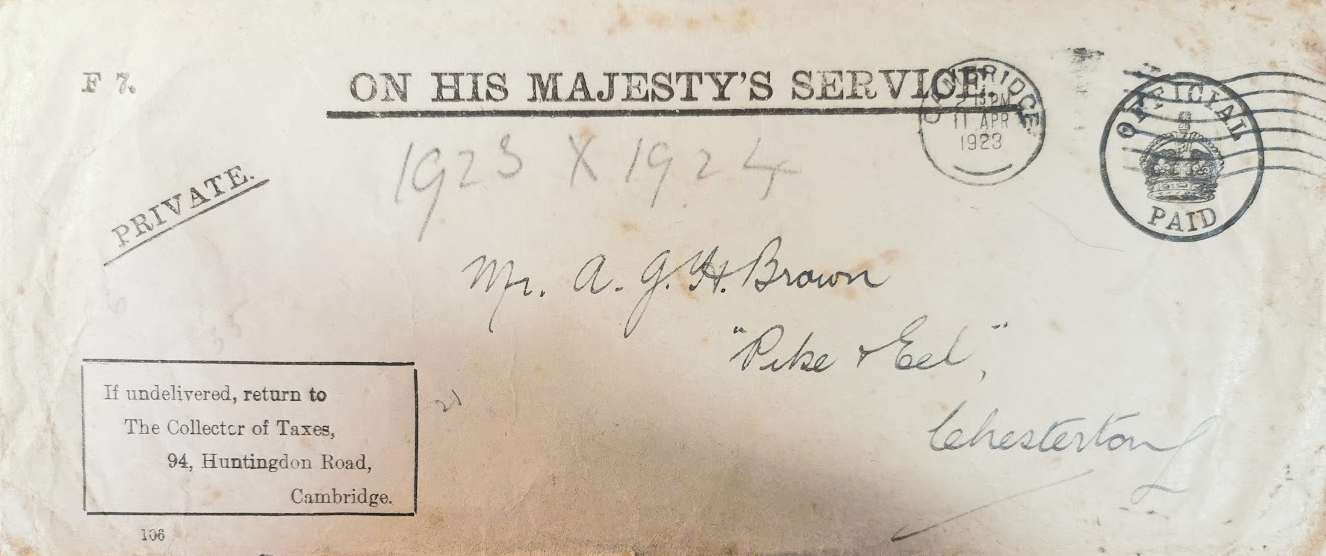 F 7.
ON HIS MAJESTY'S SERVICE.
CAMBRIDGE
PM
11 APR
1923
OFFICIAL
PAID
PRIVATE.
1923 X 1924
Mr. A. G. H. Brown
"Pike & Eel",
Chesterton
If undelivered, return to
The Collector of Taxes,
94, Huntingdon Road,
Cambridge.
106